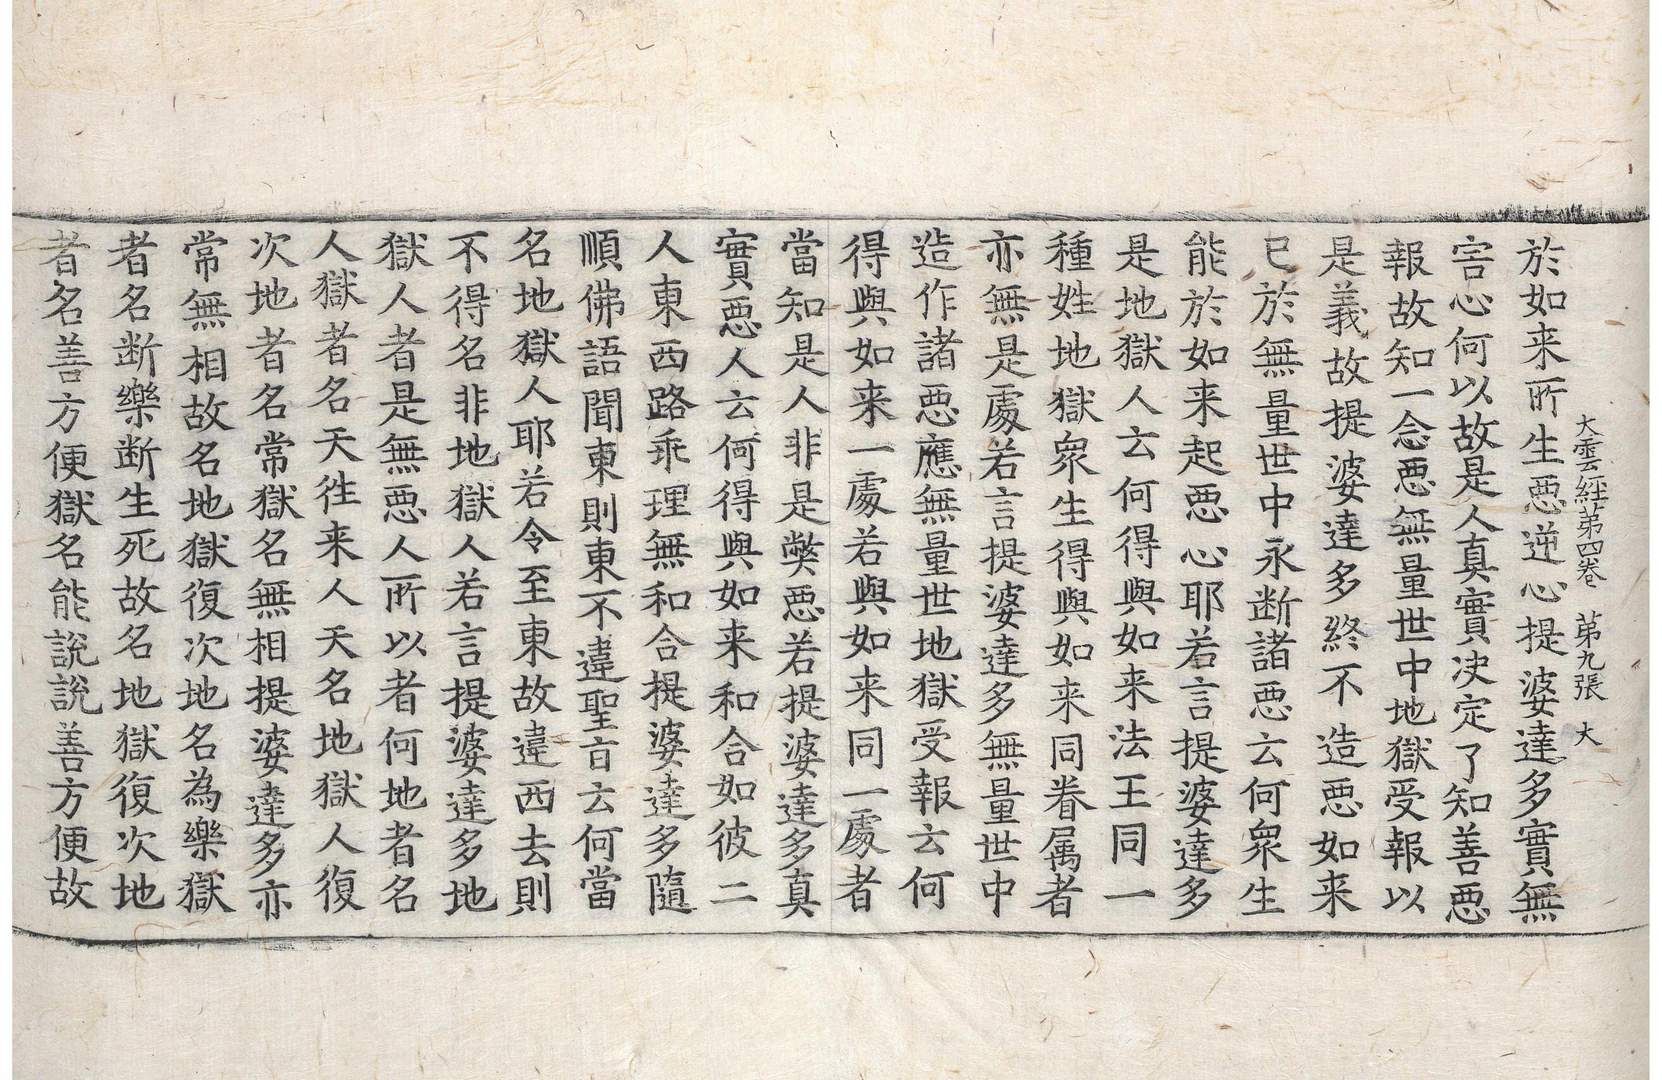 大雲経苐四巻　苐九張　大
於如来所生惡逆心提婆達多實無
害心何以故是人真實决定了知善惡
報故知一念惡無量世中地獄受報以
是義故提婆達多終不造惡如来
已於無量世中永断諸惡云何衆生
能於如来起惡心耶若言提婆達多
是地獄人云何得與如来法王同一
種姓地獄衆生得與如来同眷属者
亦無是處若言提婆達多無量世中
造作諸惡應無量世地獄受報云何
得與如来一處若與如来同一處者
當知是人非是弊惡若提婆達多真
實惡人云何得與如来和合如彼二
人東西路乖理無和合提婆達多隨
順佛語聞東則東不違聖旨云何當
名地獄人耶若令至東故違西去則
不得名非地獄人若言提婆達多地
獄人者是無惡人所以者何地者名
人獄者名天徃来人天名地獄人復
次地者名常獄名無相提婆達多亦
常無相故名地獄復次地名為樂獄
者名断樂断生死故名地獄復次地
者名善方便獄名能說說善方便故